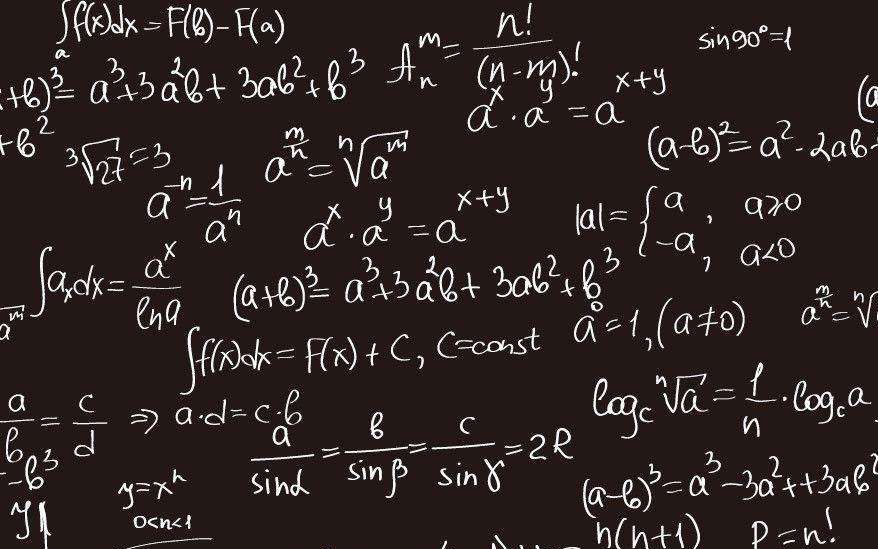 ∫ₐ f(x)dx = F(b) - F(a)
Aₙᵐ = n!/(n-m)!
sin90°=1
+b)³ = a³+3a²b+3ab²+b³
aˣ·aʸ = aˣ⁺ʸ
(a
+b²
³√27=3
a^(m/n) = ⁿ√aᵐ
(a-b)² = a²-2ab
a⁻ⁿ = 1/aⁿ
aˣ·aʸ = aˣ⁺ʸ
|a| = { a, a≥0
-a, a<0
∫aₓdx = aˣ/lna
(a+b)³ = a³+3a²b+3ab²+b³
aᵐ
a⁰=1, (a≠0)
a^(m/n) = ⁿ√
∫f(x)dx = F(x) + C, C=const
a/b = c/d ⇒ a·d=c·b
log_c ⁿ√a = 1/n · log_c a
a/sinα = b/sinβ = c/sinγ = 2R
-b³
y=xⁿ
0<n<1
(a-b)³=a³-3a²++3ab²
y
n(n+1)
P=n!